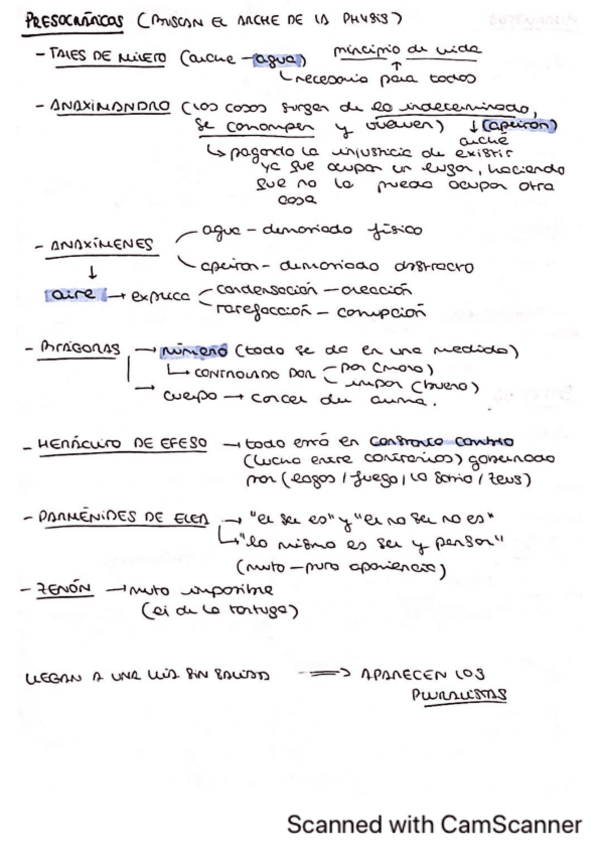 PRESOCRÁTICOS (BUSCAN EL ARCHE DE LA PHYSIS)
- TALES DE MILETO (arche - agua) principio de vida
necesario para todos
- ANAXIMANDRO (las cosas surgen de lo indeterminado,
se corrompen y vuelven) (apeiron)
arché
pagando la injusticia de existir
ya que ocupan un lugar, haciendo
que no lo pueda ocupar otra
cosa
- ANAXÍMENES
agua - demasiado físico
apeiron - demasiado abstracto
aire → explica
condensación - creación
rarefacción - corrupción
- PITÁGORAS → número (todo se da en una medida)
CONTROLADO POR
par (malo)
impar (bueno)
→ cuerpo → carcel del alma.
- HERÁCLITO DE EFESO → todo está en constante cambio
(lucha entre contrarios) gobernado
por (logos / fuego / lo sabio / Zeus)
- PARMÉNIDES DE ELEA → "el ser es" y "el no ser no es"
"lo mismo es ser y pensar"
(mvto - pura apariencia)
- ZENÓN → mvto imposible
(ej de la tortuga)
LLEGAN A UNA VÍA SIN SALIDA ⟹ APARECEN LOS
PLURALISTAS
Scanned with CamScanner